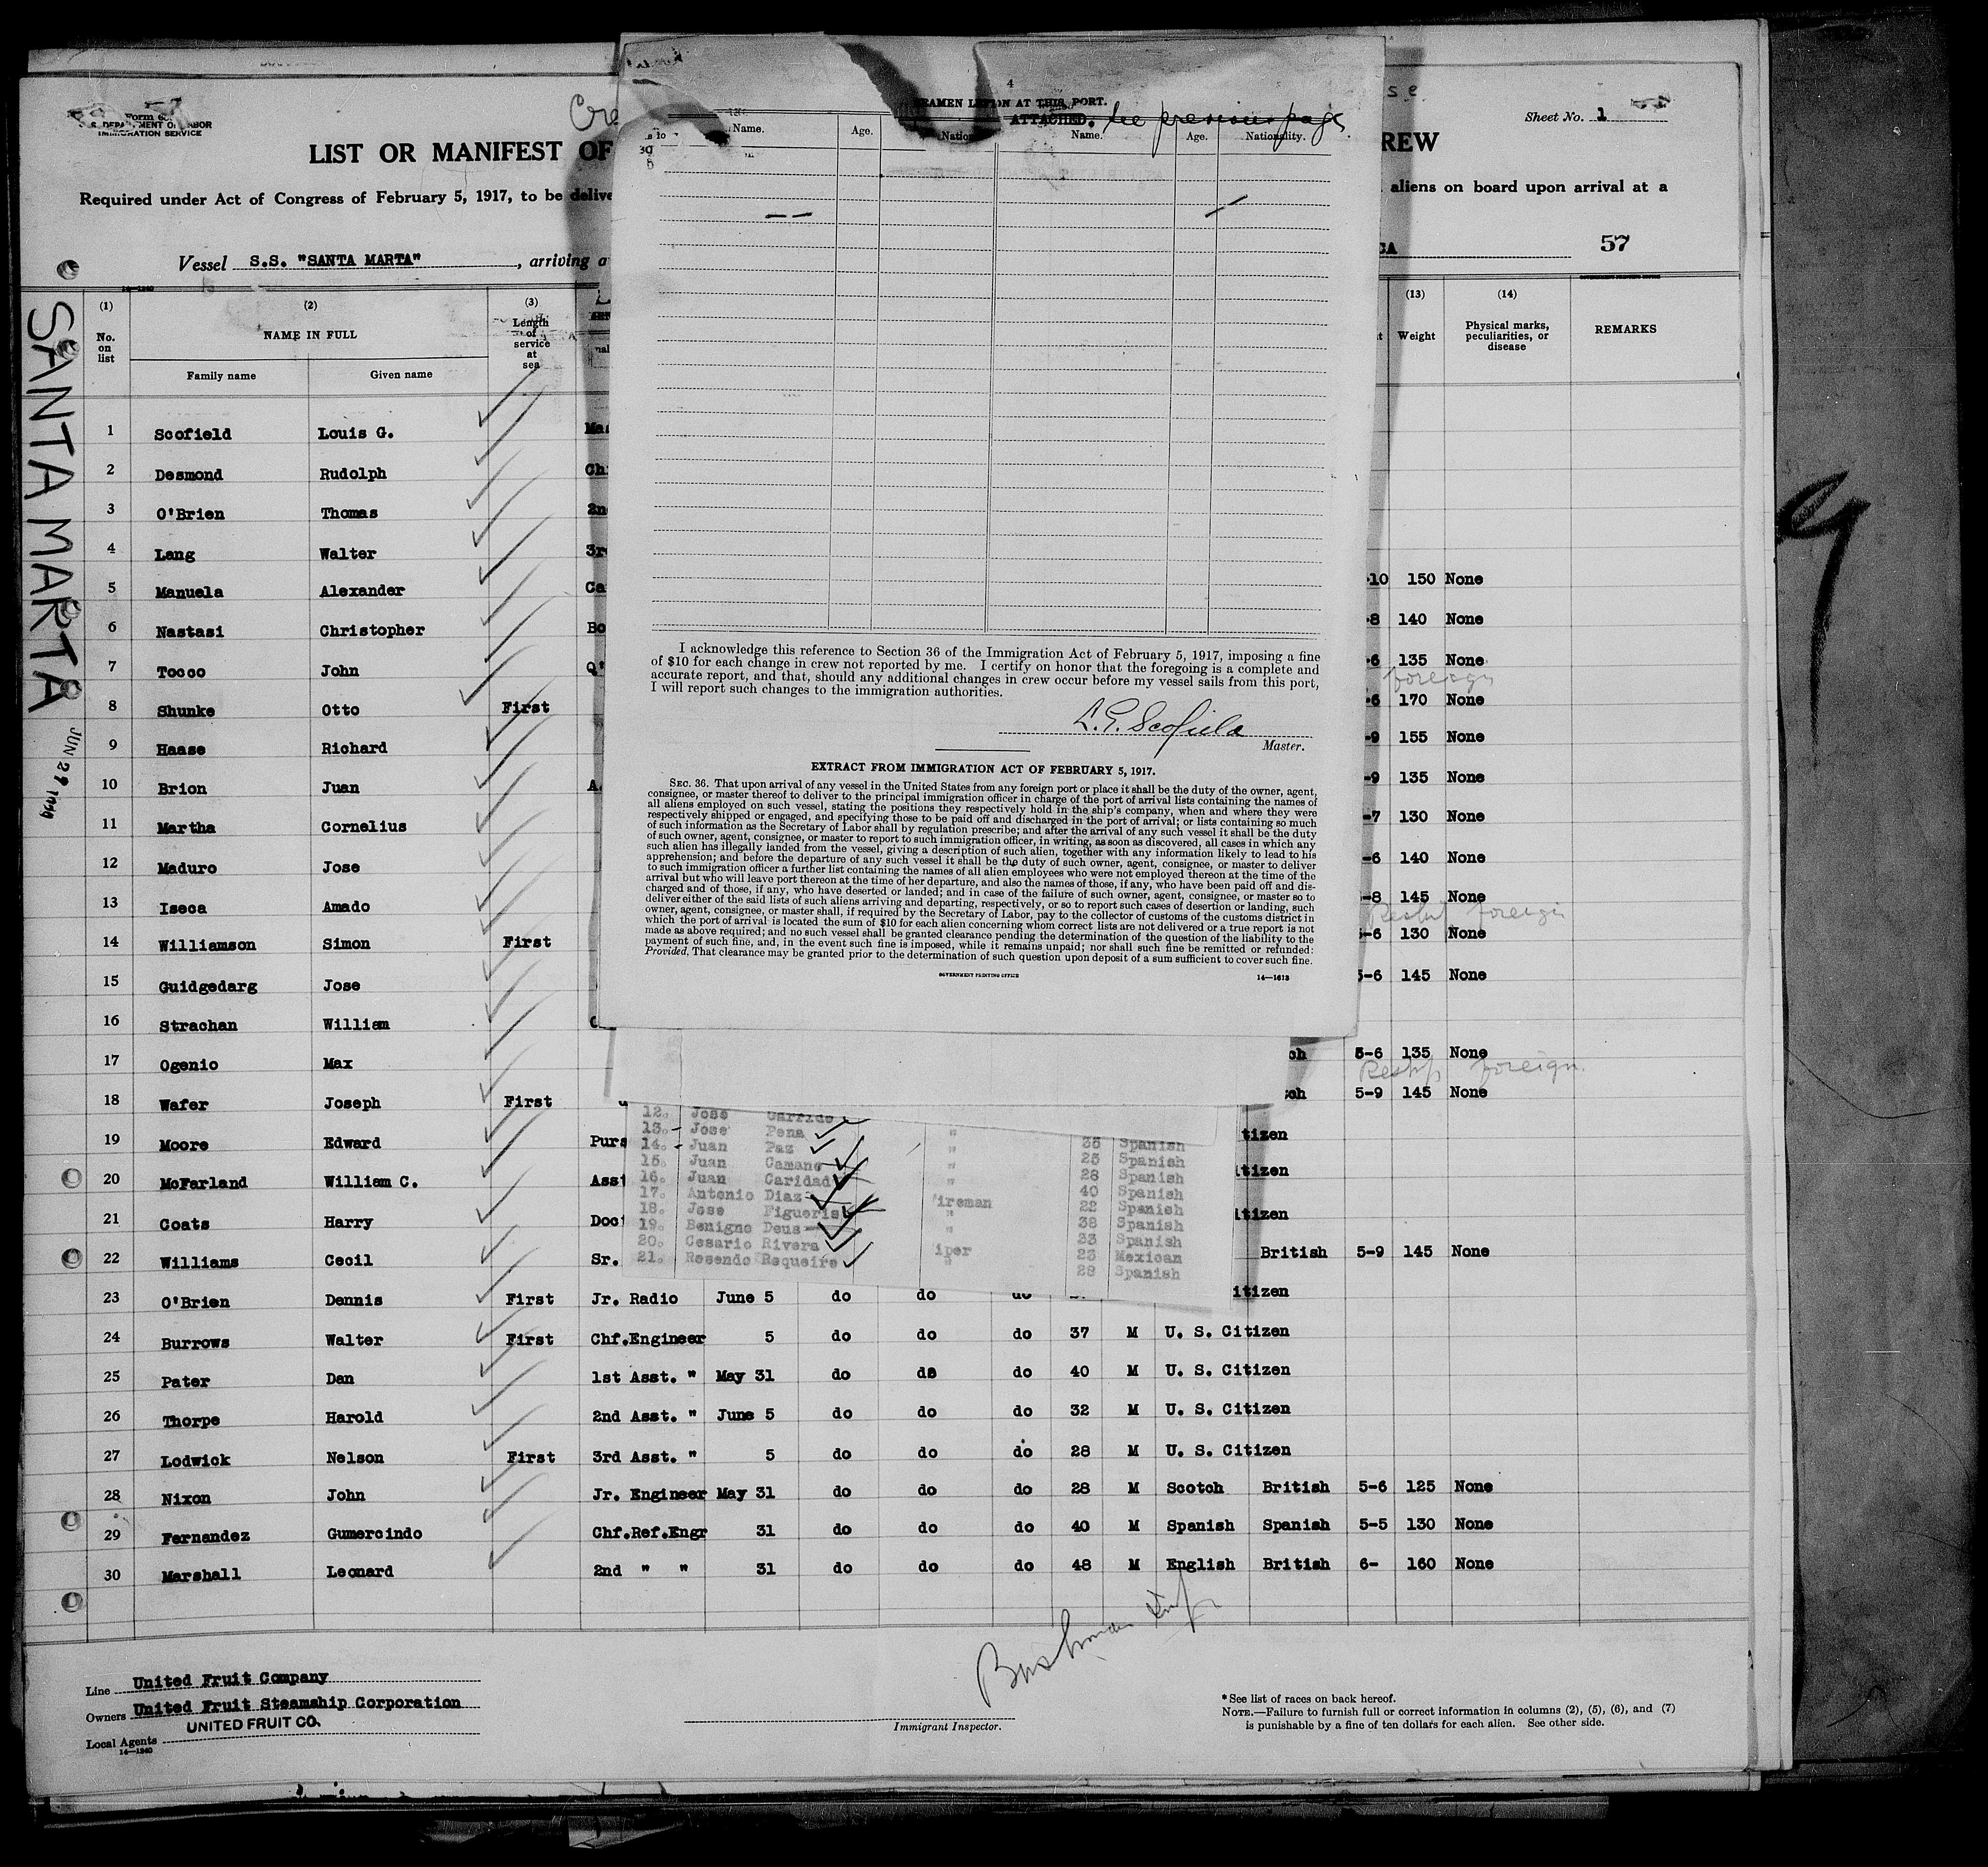 Sheet No. 1
U.S. DEPARTMENT OF LABOR
IMMIGRATION SERVICE
LIST OR MANIFEST OF
REW
Required under Act of Congress of February 5, 1917, to be delive
aliens on board upon arrival at a
Vessel S.S. "SANTA MARTA", arriving a
57
SANTA MARTA
JUN 29
(1) (2) (3) (13) (14)
No. on list NAME IN FULL Length of service at sea Weight Physical marks, peculiarities, or disease REMARKS
Family name Given name
1 Scofield Louis G.
2 Desmond Rudolph
3 O'Brien Thomas
4 Lang Walter
5 Manuela Alexander 10 150 None
6 Nastasi Christopher 8 140 None
7 Tocco John 6 135 None
foreign
8 Shunke Otto First 6 170 None
9 Haase Richard -9 155 None
10 Brion Juan -9 135 None
11 Martha Cornelius -7 130 None
12 Maduro Jose -6 140 None
13 Iseca Amado -8 145 None
foreign
14 Williamson Simon First -6 130 None
15 Guidgedarg Jose 5-6 145 None
16 Strachan William
17 Ogenio Max ch 5-6 135 None
foreign
18 Wafer Joseph First ch 5-9 145 None
19 Moore Edward Purs tizen
20 McFarland William C. Asst itizen
21 Coats Harry Doct itizen
22 Williams Cecil Sr. British 5-9 145 None
23 O'Brien Dennis First Jr. Radio June 5 do do itizen
24 Burrows Walter First Chf.Engineer 5 do do do 37 M U. S. Citizen
25 Pater Dan 1st Asst. " May 31 do do do 40 M U. S. Citizen
26 Thorpe Harold 2nd Asst. " June 5 do do do 32 M U. S. Citizen
27 Lodwick Nelson First 3rd Asst. " 5 do do do 28 M U. S. Citizen
28 Nixon John Jr. Engineer May 31 do do do 28 M Scotch British 5-6 125 None
29 Fernandez Gumercindo Chf.Ref.Engr 31 do do do 40 M Spanish Spanish 5-5 130 None
30 Marshall Leonard 2nd " " 31 do do do 48 M English British 6- 160 None
Line United Fruit Company
Owners United Fruit Steamship Corporation
Local Agents UNITED FRUIT CO.
14—1240
Immigrant Inspector.
*See list of races on back hereof.
NOTE.—Failure to furnish full or correct information in columns (2), (5), (6), and (7)
is punishable by a fine of ten dollars for each alien. See other side.
4
AT THIS PORT.
ATTACHED. See previous page
Name. Age. Name. Age. Nationality.
I acknowledge this reference to Section 36 of the Immigration Act of February 5, 1917, imposing a fine
of $10 for each change in crew not reported by me. I certify on honor that the foregoing is a complete and
accurate report, and that, should any additional changes in crew occur before my vessel sails from this port,
I will report such changes to the immigration authorities.
L. G. Scofield
Master.
EXTRACT FROM IMMIGRATION ACT OF FEBRUARY 5, 1917.
SEC. 36. That upon arrival of any vessel in the United States from any foreign port or place it shall be the duty of the owner, agent,
consignee, or master thereof to deliver to the principal immigration officer in charge of the port of arrival lists containing the names of
all aliens employed on such vessel, stating the positions they respectively hold in the ship's company, when and where they were
respectively shipped or engaged, and specifying those to be paid off and discharged in the port of arrival; or lists containing so much
of such information as the Secretary of Labor shall by regulation prescribe; and after the arrival of any such vessel it shall be the duty
of such owner, agent, consignee, or master to report to such immigration officer, in writing, as soon as discovered, all cases in which any
such alien has illegally landed from the vessel, giving a description of such alien, together with any information likely to lead to his
apprehension; and before the departure of any such vessel it shall be the duty of such owner, agent, consignee, or master to deliver
to such immigration officer a further list containing the names of all alien employees who were not employed thereon at the time of the
arrival but who will leave port thereon at the time of her departure, and also the names of those, if any, who have been paid off and dis-
charged and of those, if any, who have deserted or landed; and in case of the failure of such owner, agent, consignee, or master so to
deliver either of the said lists of such aliens arriving and departing, respectively, or so to report such cases of desertion or landing, such
owner, agent, consignee, or master shall, if required by the Secretary of Labor, pay to the collector of customs of the customs district in
which the port of arrival is located the sum of $10 for each alien concerning whom correct lists are not delivered or a true report is not
made as above required; and no such vessel shall be granted clearance pending the determination of the question of the liability to the
payment of such fine, and, in the event such fine is imposed, while it remains unpaid; nor shall such fine be remitted or refunded:
Provided, That clearance may be granted prior to the determination of such question upon deposit of a sum sufficient to cover such fine.
GOVERNMENT PRINTING OFFICE
14—1613
12. Jose Garrido
13. Jose Pena " 35 Spanish
14. Juan Paz " 25 Spanish
15. Juan Camano " 28 Spanish
16. Juan Caridad 40 Spanish
17. Antonio Diaz ireman 22 Spanish
18. Jose Figueris " 38 Spanish
19. Benigno Deus " 33 Spanish
20. Cesario Rivera iper 23 Mexican
21. Resendo Requeire " 28 Spanish